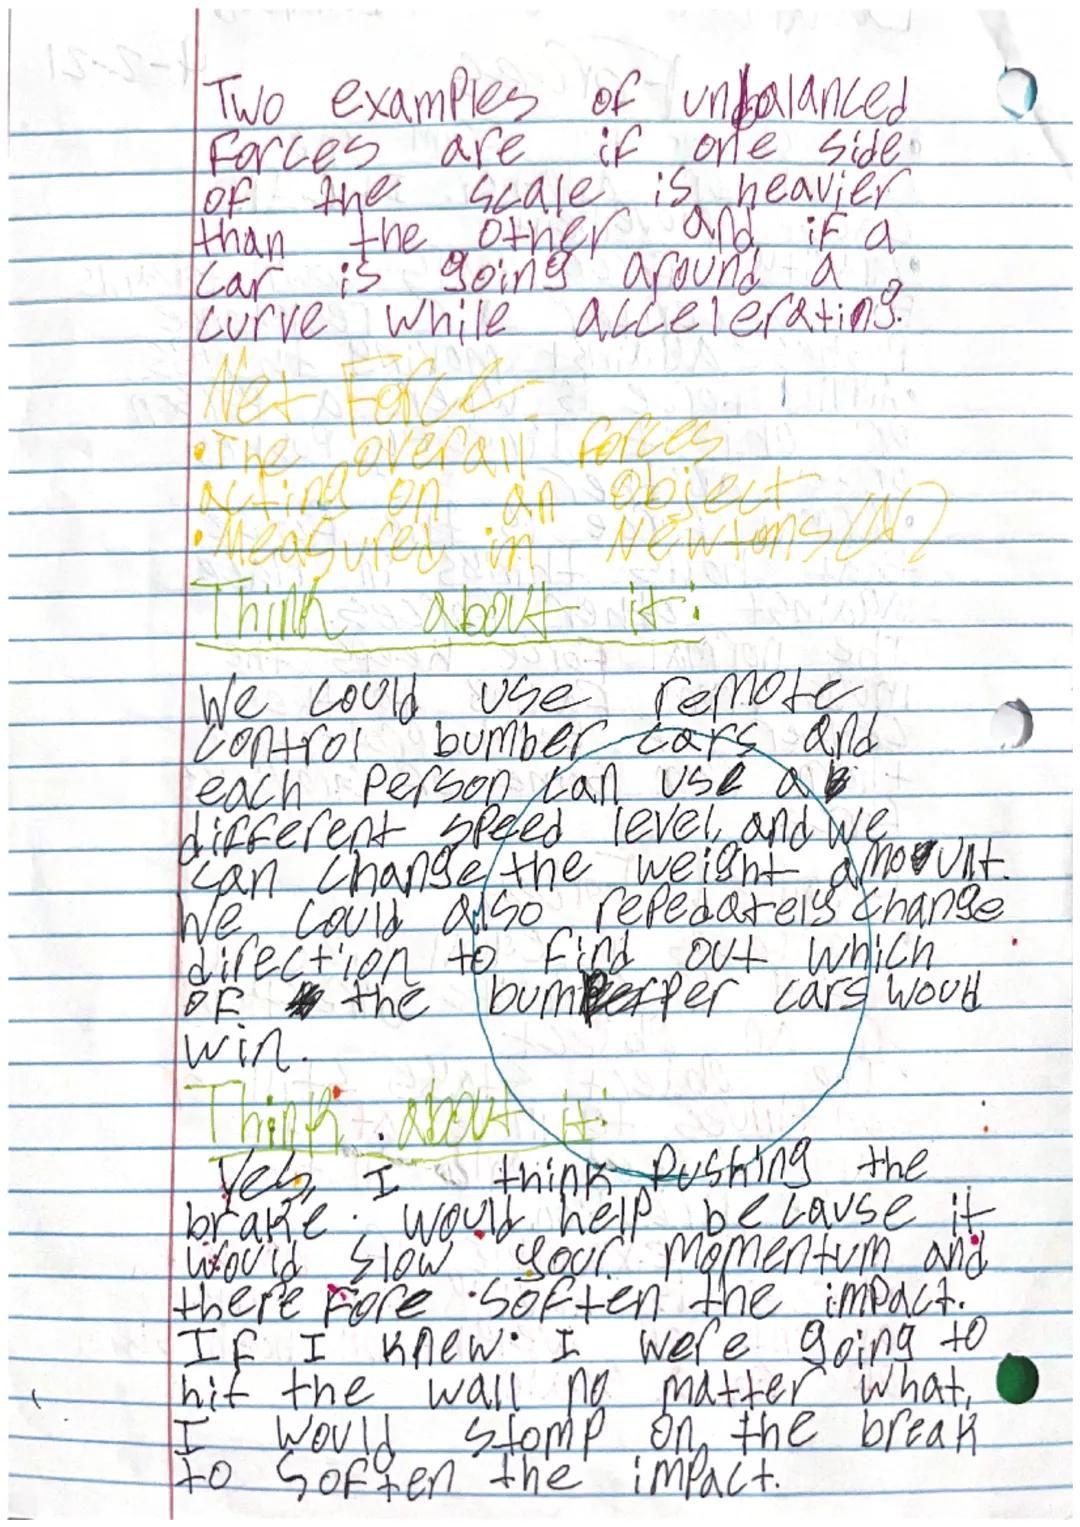 Two examples of unbalanced
Forces are if one side
of the scale is heavier
than the other and if a
car is going around a
curve while accelerating.
Net Force-
•The overall forces
acting on an object
•Measured in Newtons (N)
Think about it:
We could use remote
control bumber cars and
each person can use a
different speed level, and we
can change the weight amount.
We could also repedately change
direction to find out which
of the bumpper cars would
win.
Think about it:
Yes, I think pushing the
brake would help because it
would slow your momentum and
therefore soften the impact.
If I knew I were going to
hit the wall no matter what,
I would stomp on the break
to soften the impact.